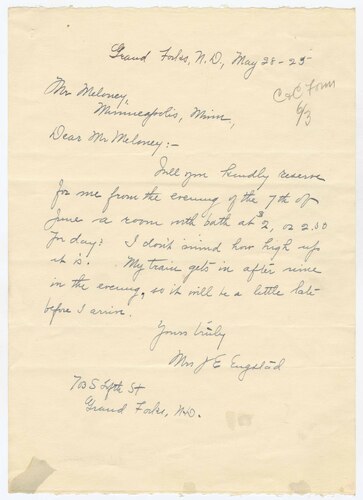 Grand Forks, N.D., May 28-25
C & C Form
6/3
Mr Meloney,
Minneapolis, Minn,
Dear Mr Meloney:-
Will you kindly reserve
for me from the evening of the 7th of
June a room with bath at $2, or 2.50
for day? I don't mind how high up
it is. My train gets in after nine
in the evening, so it will be a little late
before I arrive.
Yours truly
Mrs J E Engstad
703 S Fifth St
Grand Forks, N.D.